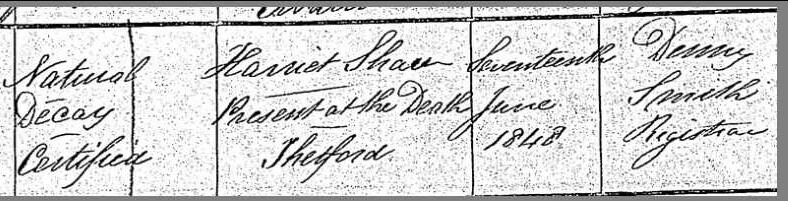 Natural
Decay
Certified
Harriet Shaw
Present at the Death
Thetford
Seventeenth
June
1848
Denny
Smith
Registrar